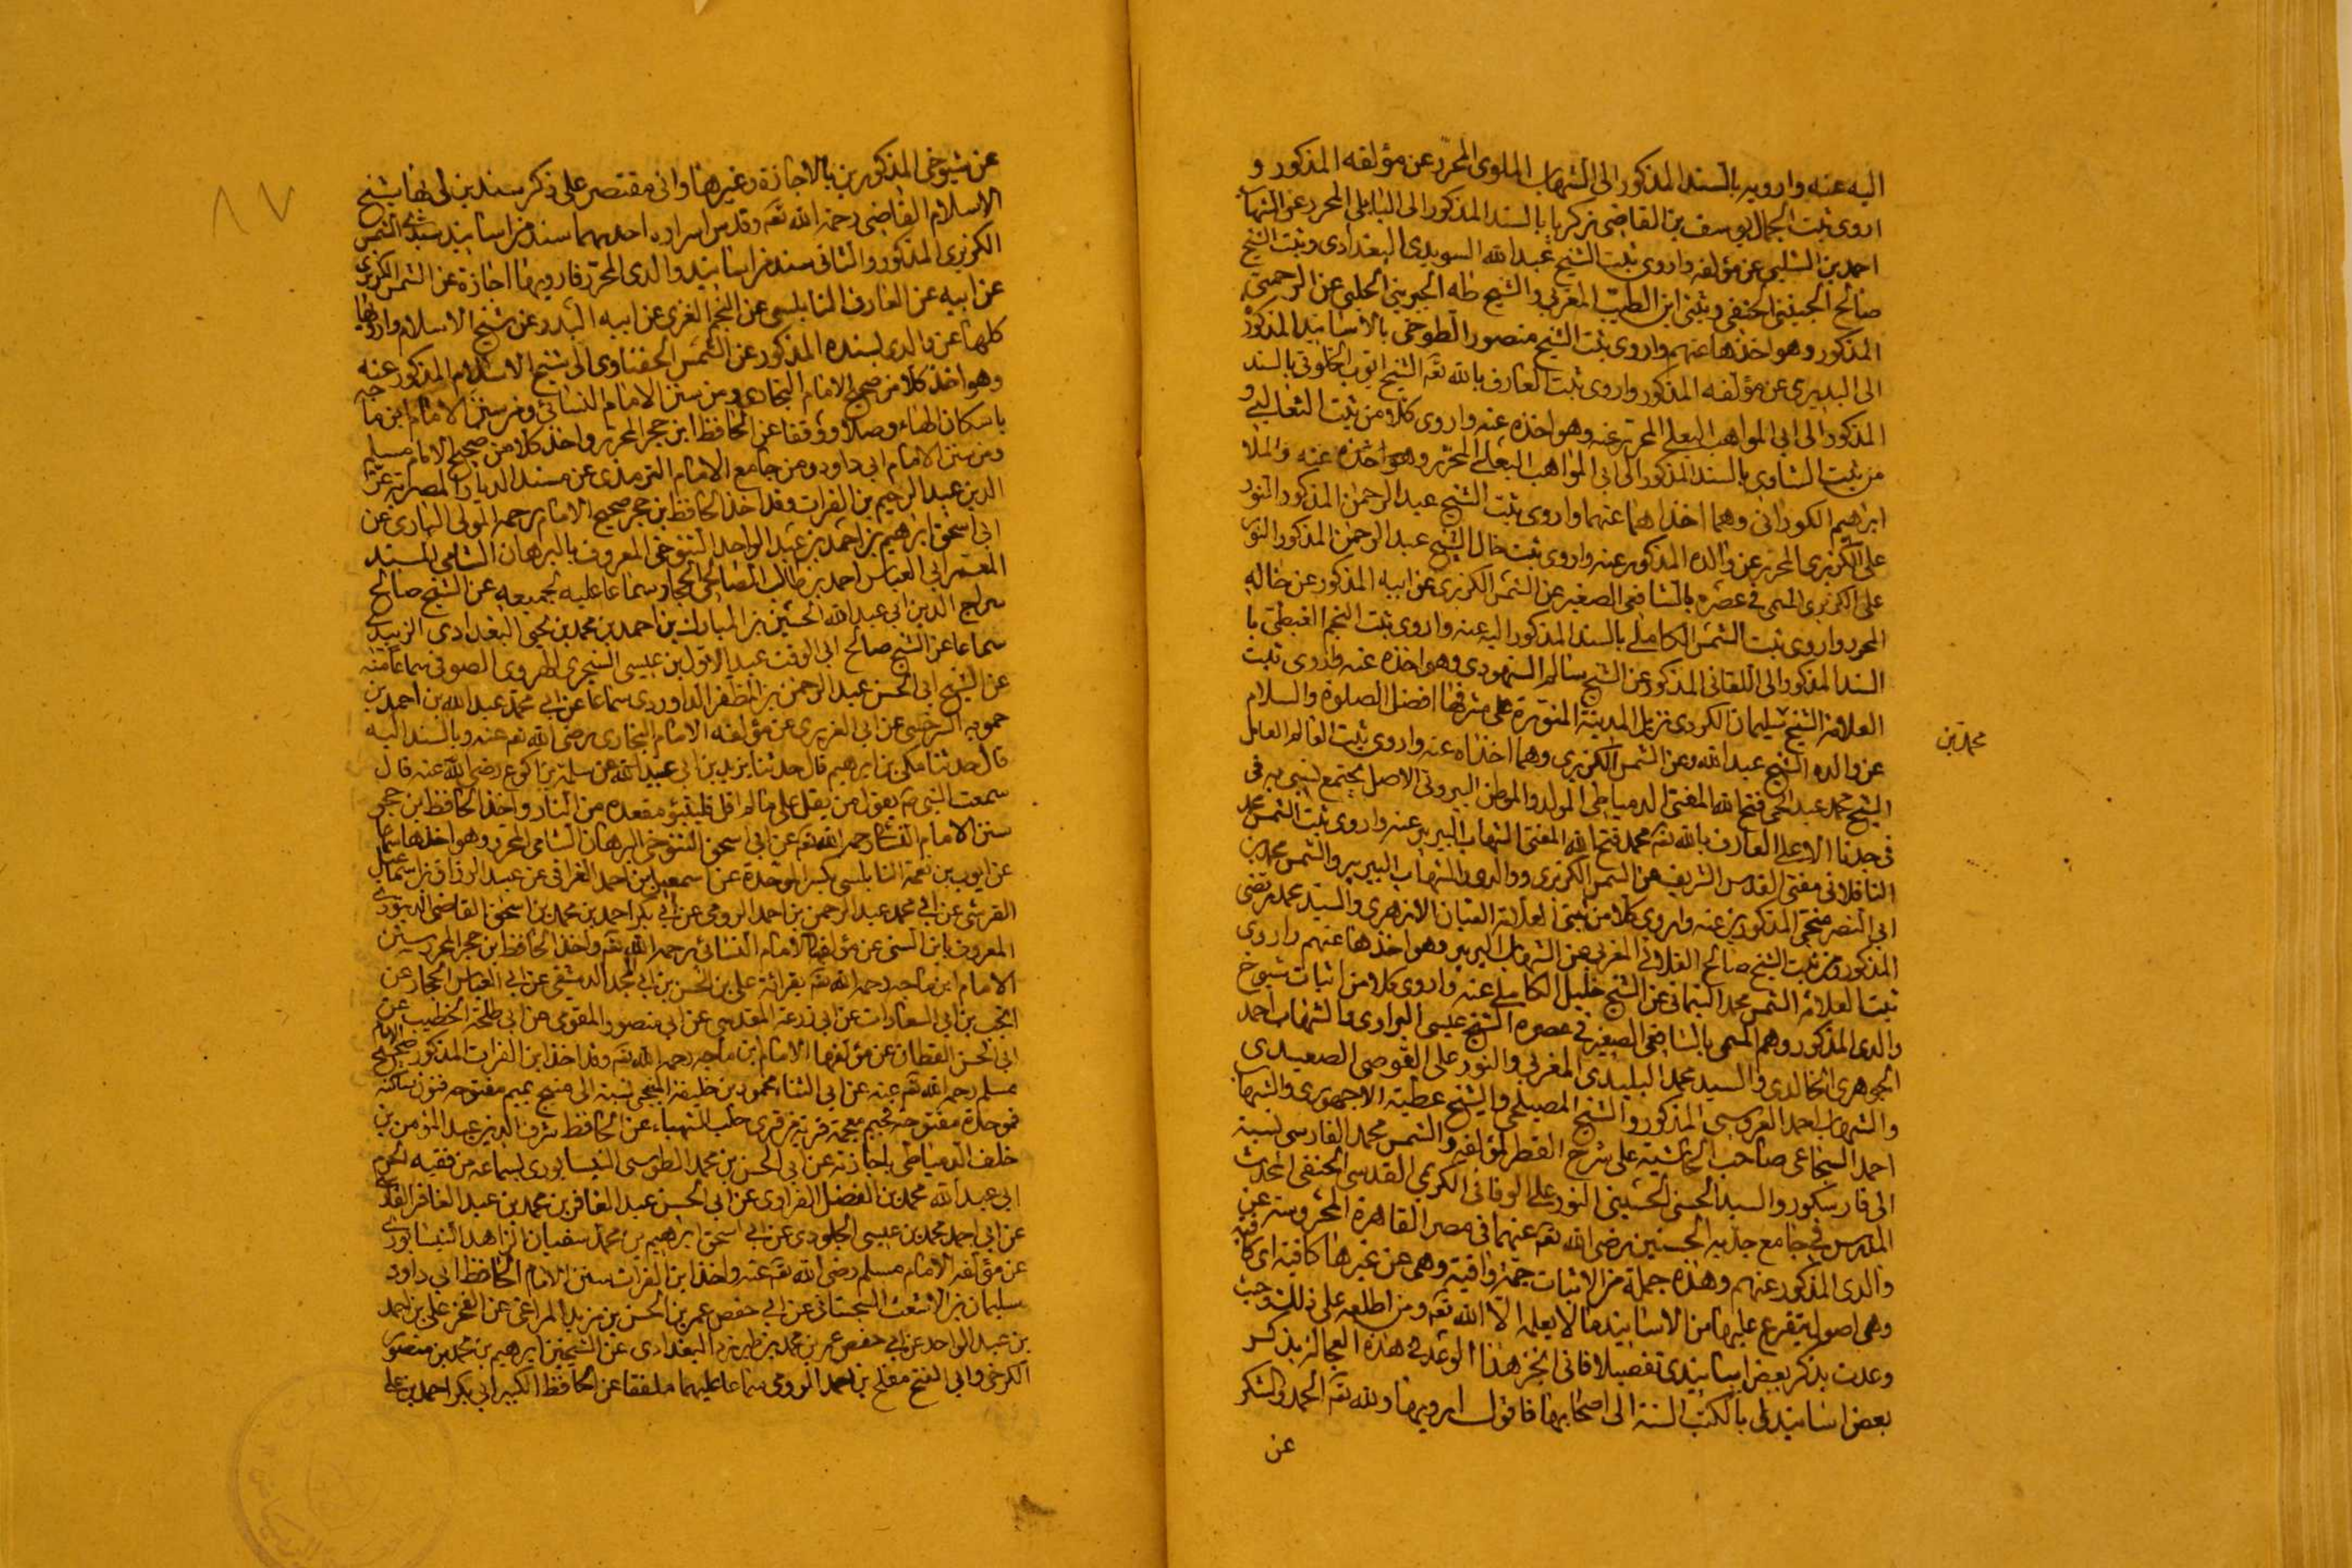 اليه عنه وارويه بالسند المذكور الى الشهاب الملوى المحرر عن مؤلفه المذكور و
اروى ثبت الجمال يوسف بن القاضى زكريا بالسند المذكور الى البابلى المحرر عن الشهاب
احمد بن الشلبى عن مؤلفه واروى ثبت الشيخ عبد الله السويدى البغدادى وثبت الشيخ
صالح الجينينى الحنفى وثبتى ابن الطيب المغربى والشيخ طه الجبرينى الحلبى عن الرحمتى
المذكور وهو اخذها عنهم واروى ثبت الشيخ منصور الطوخى بالاسانيد المذكورة
الى البديرى عن مؤلفه المذكور واروى ثبت العارف بالله تعه الشيخ ايوب الخلوتى بالسند
المذكور الى ابى المواهب البعلى المحرر عنه وهو اخذه عنه واروى كلا من ثبت الثعالبى و
من ثبت الشاوى بالسند المذكور الى ابى المواهب البعلى المحرر وهو اخذه عنه والملا
ابراهيم الكورانى وهما اخذاهما عنهما واروى ثبت الشيخ عبد الرحمن المذكور النور
على الكزبرى المحرر عن والده المذكور عنه واروى ثبت خال الشيخ عبد الرحمن المذكور النور
على الكزبرى المسمى فى عصره بالشافعى الصغير عن الشمس الكزبرى عن ابيه المذكور عن خاله
المحرر واروى ثبت الشمس الكاملى بالسند المذكور اليه عنه واروى ثبت النجم الغيطى با
السند المذكور الى اللقانى المذكور عن الشيخ سالم السنهورى وهو اخذه عنه واروى ثبت
العلامة الشيخ سليمان الكردى نزيل المدينة المنورة على مشرفها افضل الصلوة والسلام
عن والده الشيخ عبد الله وعن الشمس الكزبرى وهما اخذاه عنه واروى ثبت العالم العامل
محمد بن
الشيخ محمد عبد الحى فتح الله المفتى الدمياطى المولد والموطن البيروتى الاصل يجتمع نسبى به فى
فى جدنا الاعلى العارف بالله تعه محمد فتح الله المفتى الشهاب البربير عنه واروى ثبت الشمس محمد
التافلاتى مفتى القدس الشريف عن الشمس الكزبرى ووالدى والشهاب البربير والشمس محمد بن
ابى النصر فتحى المذكورين عنه واروى كلا من ثبتى العلامة الفتيان الازهرى والسيد محمد مرتضى
المذكور ومن ثبت الشيخ صالح الفلانى المغربى عن الشهاب البربير وهو اخذها عنهم واروى
ثبت العلامة الشمس محمد اليمانى عن الشيخ خليل الكاملى عنه واروى كلا من اثبات شيوخ
والدى المذكور وهم المسمى بالشافعى الصغير فى عصره الشيخ عيسى البراوى والشهاب احمد
الجوهرى الخالدى والسيد محمد البليدى المغربى والنور على القوصى الصعيدى
والشهاب احمد العروسى المذكور والشيخ المصيلحى والشيخ عطية الاجهورى والشهاب
احمد السجاعى صاحب الحاشية على شرح القطر لمؤلفه والشمس محمد الفارسى نسبة
الى فارسكور والسيد الحسنى الحسينى النور على الوفائى الكريمى القدسى الحنفى المحدث
المدرس فى جامع جديه الحسنين رضى الله تعه عنهما فى مصر القاهرة المحروسة عن
والدى المذكور عنهم وهذه جملة من الاثبات جمة وافية وهى عن غيرها كافية اى كافية
وهى اصول يتفرع عليها من الاسانيد ما لا يعلمه الا الله تعه ومن اطلعه على ذلك وحيث
وعدت بذكر بعض اسانيدى تفصيلا فانى انجز هذا الوعد فى هذه العجالة بذكر
بعض اسانيدى بالكتب الستة الى اصحابها فاقول ارويها ولله تعه الحمد والشكر
عن
عن شيوخى المذكورين بالاجازة وغيرها وانى مقتصر على ذكر سندين لى بها شيخ
الاسلام القاضى رحمه الله تعه وقدس اسراره احدهما سند من اسانيد شيخى الشمس
الكزبرى المذكور والثانى سند من اسانيد والدى المحرر فارويها اجازة عن الشمس الكزبرى
عن ابيه عن العارف النابلسى عن النجم الغزى عن ابيه البدر عن شيخ الاسلام وارويها
كلها عن والدى بسنده المذكور عن الشمس الحفناوى الى شيخ الاسلام المذكور عنه
وهو اخذ كلا من صحيح الامام البخارى ومن سنن الامام النسائى ومن سنن الامام ابن ماجه
باسكان الهاء وصلا ووقفا عن الحافظ ابن حجر المحرر واخذ كلا من صحيح الامام مسلم
ومن سنن الامام ابى داود ومن جامع الامام الترمذى عن مسند الديار المصرية عز
الدين عبد الرحيم بن الفرات وقد اخذ الحافظ ابن حجر صحيح الامام رحمه المولى البارى عن
ابى اسحق ابرهيم بن احمد بن عبد الواحد التنوخى المعروف بالبرهان الشامى المسند
المعمر ابى العباس احمد بن طالب الصالحى الحجار سماعا عليه لجميعه عن الشيخ صالح
سراج الدين ابى عبد الله الحسين بن المبارك بن احمد بن محمد بن يحيى البغدادى الزبيدى
سماعا عن الشيخ صالح ابى الوقت عبد الاول بن عيسى السجزى الهروى الصوفى سماعا منه
عن الشيخ ابى الحسن عبد الرحمن بن المظفر الداوردى سماعا عن ابى محمد عبد الله بن احمد بن
حمويه السرخسى عن ابى الفربرى عن مؤلفه الامام البخارى رضى الله تعه عنه وبالسند اليه
قال حدثنا مكى بن ابرهيم قال حدثنا يزيد بن ابى عبيد الله عن سلمة بن اكوع رضى الله عنه قال
سمعت النبى م يقول من يقل على مالم اقل فليتبوء مقعده من النار واخذ الحافظ ابن حجر
سنن الامام النسائى رحمه الله تعه عن ابى اسحق التنوخى البرهان الشامى المحرر وهو اخذها سماعا
عن ايوب بن نعمة النابلسى بكسر الموحدة عن اسمعيل بن احمد العراقى عن عبد الرزاق بن اسمعيل
القرشى عن ابى محمد عبد الرحمن بن احمد الرومى عن ابى بكر احمد بن محمد بن اسحق القاضى الدينورى
المعروف بابن السنى عن مؤلفها الامام النسائى رحمه الله تعه واخذ الحافظ ابن حجر المحرر سنن
الامام ابن ماجه رحمه الله تعه بقرائة على بن الحسن بن ابى المجد الدمشقى عن ابى العباس الحجار عن
انجب بن ابى السعادات عن ابى زرعة المقدسى عن ابى منصور المقومى عن ابى طلحة الخطيب عن
ابى الحسن القطان عن مؤلفها الامام ابن ماجه رحمه الله تعه وقد اخذ ابن الفرات المذكور صحيح الامام
مسلم رحمه الله تعه عنه عن ابى الثناء محمود بن خليفة المنبجى نسبة الى منبج بميم مفتوحة فنون ساكنة
فموحدة مفتوحة فجيم معجمة قرية من قرى حلب الشهباء عن الحافظ شرف الدين عبد المؤمن بن
خلف الدمياطى باجازته عن ابى الحسن بن محمد الطوسى النيسابورى بسماعه من فقيه الحرم
ابى عبد الله محمد بن الفضل الفراوى عن ابى الحسن عبد الغافر بن محمد بن عبد الغافر الفارسى
عن ابى احمد محمد بن عيسى الجلودى عن ابى اسحق ابرهيم بن محمد سفيان الزاهد النيسابورى
عن مؤلفه الامام مسلم رضى الله تعه عنه واخذ ابن الفرات سنن الامام الحافظ ابى داود
سليمان بن الاشعث السجستانى عن ابى حفص عمر بن الحسن بن مزيد المراغى عن الفخر على بن احمد
بن عبد الواحد عن ابى حفص عمر بن محمد بن طبرزد البغدادى عن الشيخين ابرهيم بن محمد بن منصور
الكرخى وابى الفتح مفلح بن احمد الرومى سماعا عليهما ملفقا عن الحافظ الكبير ابى بكر احمد بن على